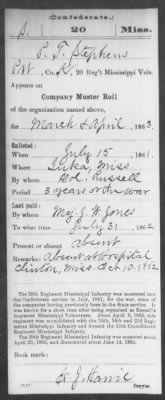 (Confederate.)
S. 20 Miss.
P. T. Stephens
Pvt, Co. K, 20 Reg't Mississippi Vols.
Appears on
Company Muster Roll
of the organization named above,
for March & April, 1863.
Enlisted:
When July 15, 1861.
Where Iuka Miss
By whom Col. Russell
Period 3 years or the war
Last paid:
By whom Maj. J. W. Jones
To what time July 31, 1862
Present or absent absent
Remarks: absent at hospital
Clinton, Miss. Oct. 10, 1862
The 20th Regiment Mississippi Infantry was mustered into
the Confederate service in July, 1861, for the war, some of
the companies having previously been in the State service. It
was known for a short time after being organized as Russell's
Regiment Mississippi Volunteers. About April 9, 1865, this
regiment was consolidated with the
Mississippi Infantry and formed the 15th Consolidated
Regiment Mississippi Infantry.
Book mark:
Copyist.